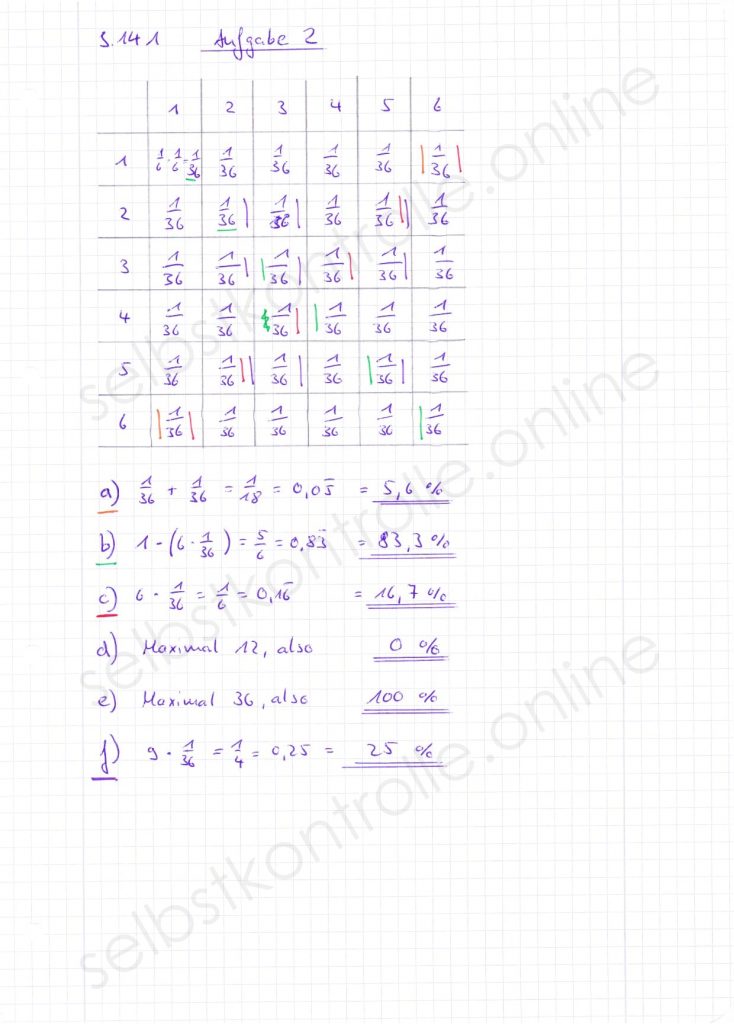 S. 141 Aufgabe 2
1 2 3 4 5 6
1 1/6 · 1/6 = 1/36 1/36 1/36 1/36 1/36 1/36
2 1/36 1/36 1/36 1/36 1/36 1/36
3 1/36 1/36 1/36 1/36 1/36 1/36
4 1/36 1/36 1/36 1/36 1/36 1/36
5 1/36 1/36 1/36 1/36 1/36 1/36
6 1/36 1/36 1/36 1/36 1/36 1/36
a) 1/36 + 1/36 = 1/18 = 0,05̅ = 5,6 %
b) 1 - (6 · 1/36) = 5/6 = 0,83̅ = 83,3 %
c) 6 · 1/36 = 1/6 = 0,16̅ = 16,7 %
d) Maximal 12, also 0 %
e) Maximal 36, also 100 %
f) 9 · 1/36 = 1/4 = 0,25 = 25 %
selbstkontrolle.online
selbstkontrolle.online
selbstkontrolle.online